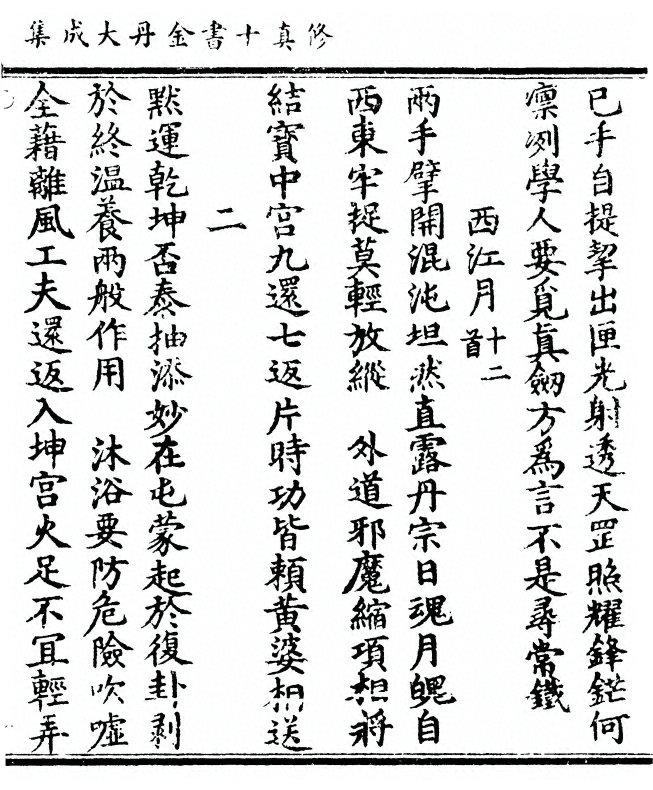 修真十書金丹大成集
已手自提挈出匣光射透天罡照耀鋒鋩何
凛冽學人要覓真劒方爲言不是尋常鐵
西江月十二首
兩手擘開混沌坦然直露丹宗日魂月魄自
西東牢捉莫輕放縱　外道邪魔縮項相將
結寶中宮九還七返片時功皆頼黄婆相送
二
默運乾坤否泰抽添妙在屯蒙起於復卦剥
於終温養兩般作用　沐浴要防危險吹嘘
全藉離風工夫還返入坤宮火足不冝輕弄